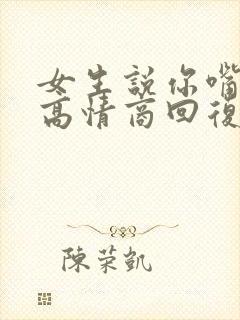 女生説你嘴
高情商回復
陳荣凱